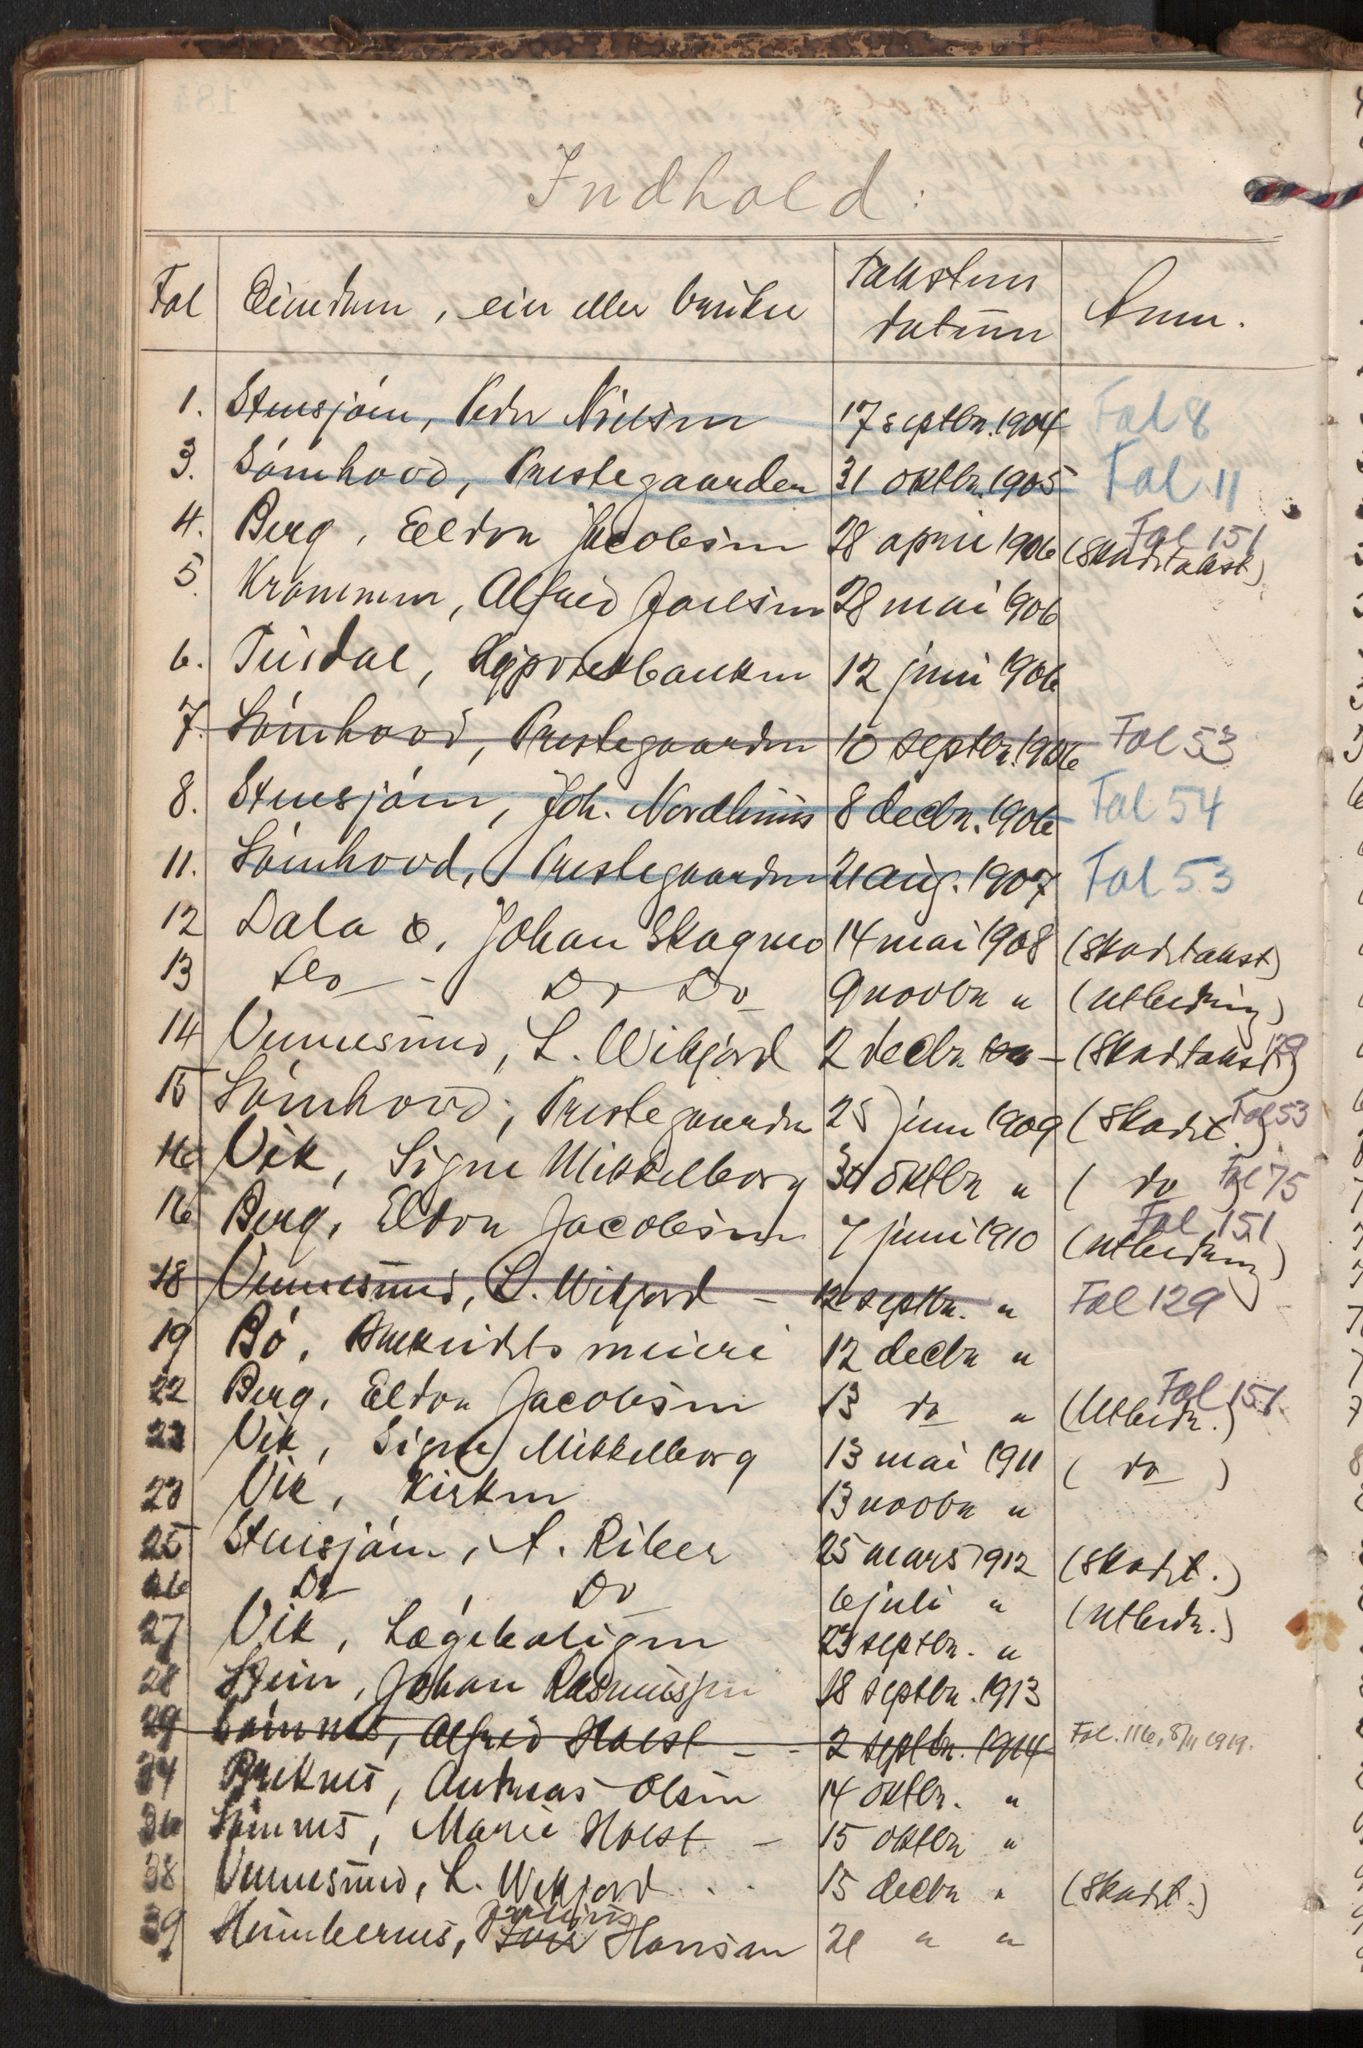 Indhold:
Fol Eiendom, eier eller bruker Takstens datum Anm.
1. Stensjøen, Peder Nielsen 17 septbr. 1904 Fol 8
3. Sømhovd, Prestegaarden 31 oktbr. 1905 Fol. 11
4. Berg, Eldon Jacobsen 28 april 1906 (Skadetakst) Fol 151
5. Alfred Joelsen 28 mai 1906
6. Hypotekbanken 12 juni 1906
7. Sømhovd, Prestegaarden 10 septbr. 1906 Fol 53
8. Stensjøen, Joh. Nordhuus 8 decbr. 1906 Fol. 54
11. Sømhovd, Prestegaarden 21 aug. 1907 Fol 53
12 Dala ø, Johan Skogmo 14 mai 1908 (Skadetakst)
13 Do - Do Do 9 novbr " (Utbedring)
14 Vennesund, L. Wikfjord 2 decbr - (Skadetakst) 129
15 Sømhovd, Prestegaarden 25 juni 1909 (Skadet.) Fol 53
16 Vik, Signe Mikkelborg oktbr " ( do ) Fol 75
16 Berg, Eldon Jacobsen 7 juni 1910 (Utbedring) Fol 151
18 Vennesund, L. Wikfjord - 12 septbr. " Fol 129
19 Bø, meieri 12 decbr "
22 Berg, Eldon Jacobsen 13 do " (Utbedr.) Fol 151.
23 Vik, Signe Mikkelborg 13 mai 1911 ( do )
23 Vik, Kirken 13 novbr "
25 Stensjøen, A. Riber 25 mars 1912 (Skadet.)
26 Do Do 6 juli " (Utbedr.)
27 Vik, Lægeboligen 23 septbr. "
28 Johan Rasmussen 18 septbr. 1913
29 Sømnes, Alfred Holst - - 2 septbr. 1914 Fol. 116, 8/11 1919.
34 Breknes, Andreas Olsen 14 oktbr. "
36 Sømnes, Marie Holst - 15 oktbr "
38 Vennesund, L. Wikfjord . . 15 decbr " (Skadet.)
39 Hansen 21 " "